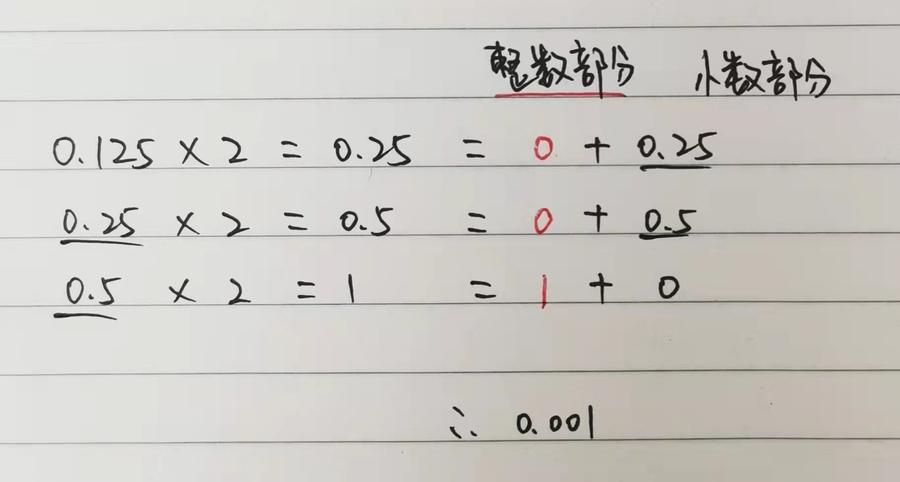 整数部分 小数部分
0.125 × 2 = 0.25 = 0 + 0.25
0.25 × 2 = 0.5 = 0 + 0.5
0.5 × 2 = 1 = 1 + 0
∴ 0.001